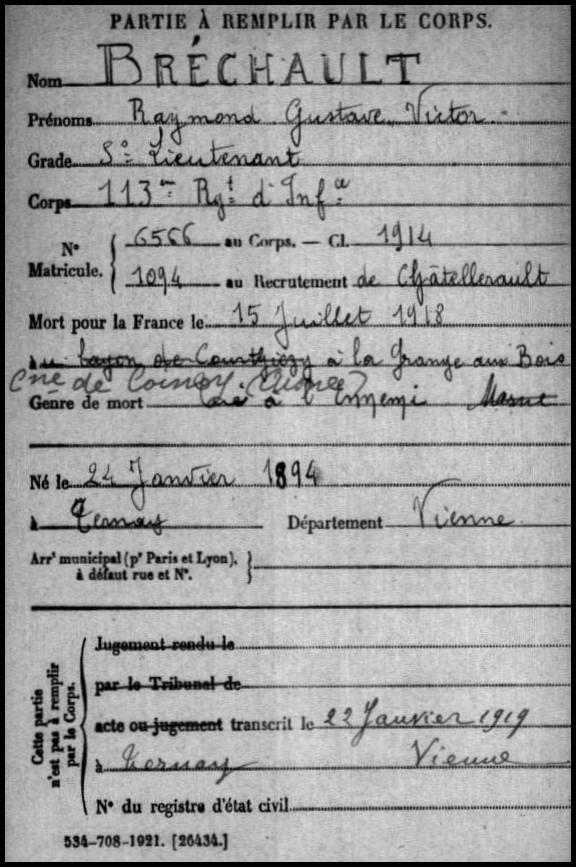 PARTIE À REMPLIR PAR LE CORPS.
Nom BRÉCHAULT
Prénoms Raymond Gustave Victor
Grade S/s Lieutenant
Corps 113me Rgt d'Infie
N° Matricule. { 6566 au Corps. — Cl. 1914
1094 au Recrutement de Châtellerault
Mort pour la France le 15 Juillet 1918
à au bayon de Courthiezy à la Grange aux Bois
Cne de Coinoy (Aisne)
Genre de mort tué à l'Ennemi
Né le 24 Janvier 1894
à Ternay Département Vienne
Arrt municipal (pr Paris et Lyon), }
à défaut rue et N°.
Cette partie n'est pas à remplir par le Corps.
Jugement rendu le
par le Tribunal de
acte ou jugement transcrit le 22 Janvier 1919
à Ternay Vienne
N° du registre d'état civil
534-708-1921. [26434.]